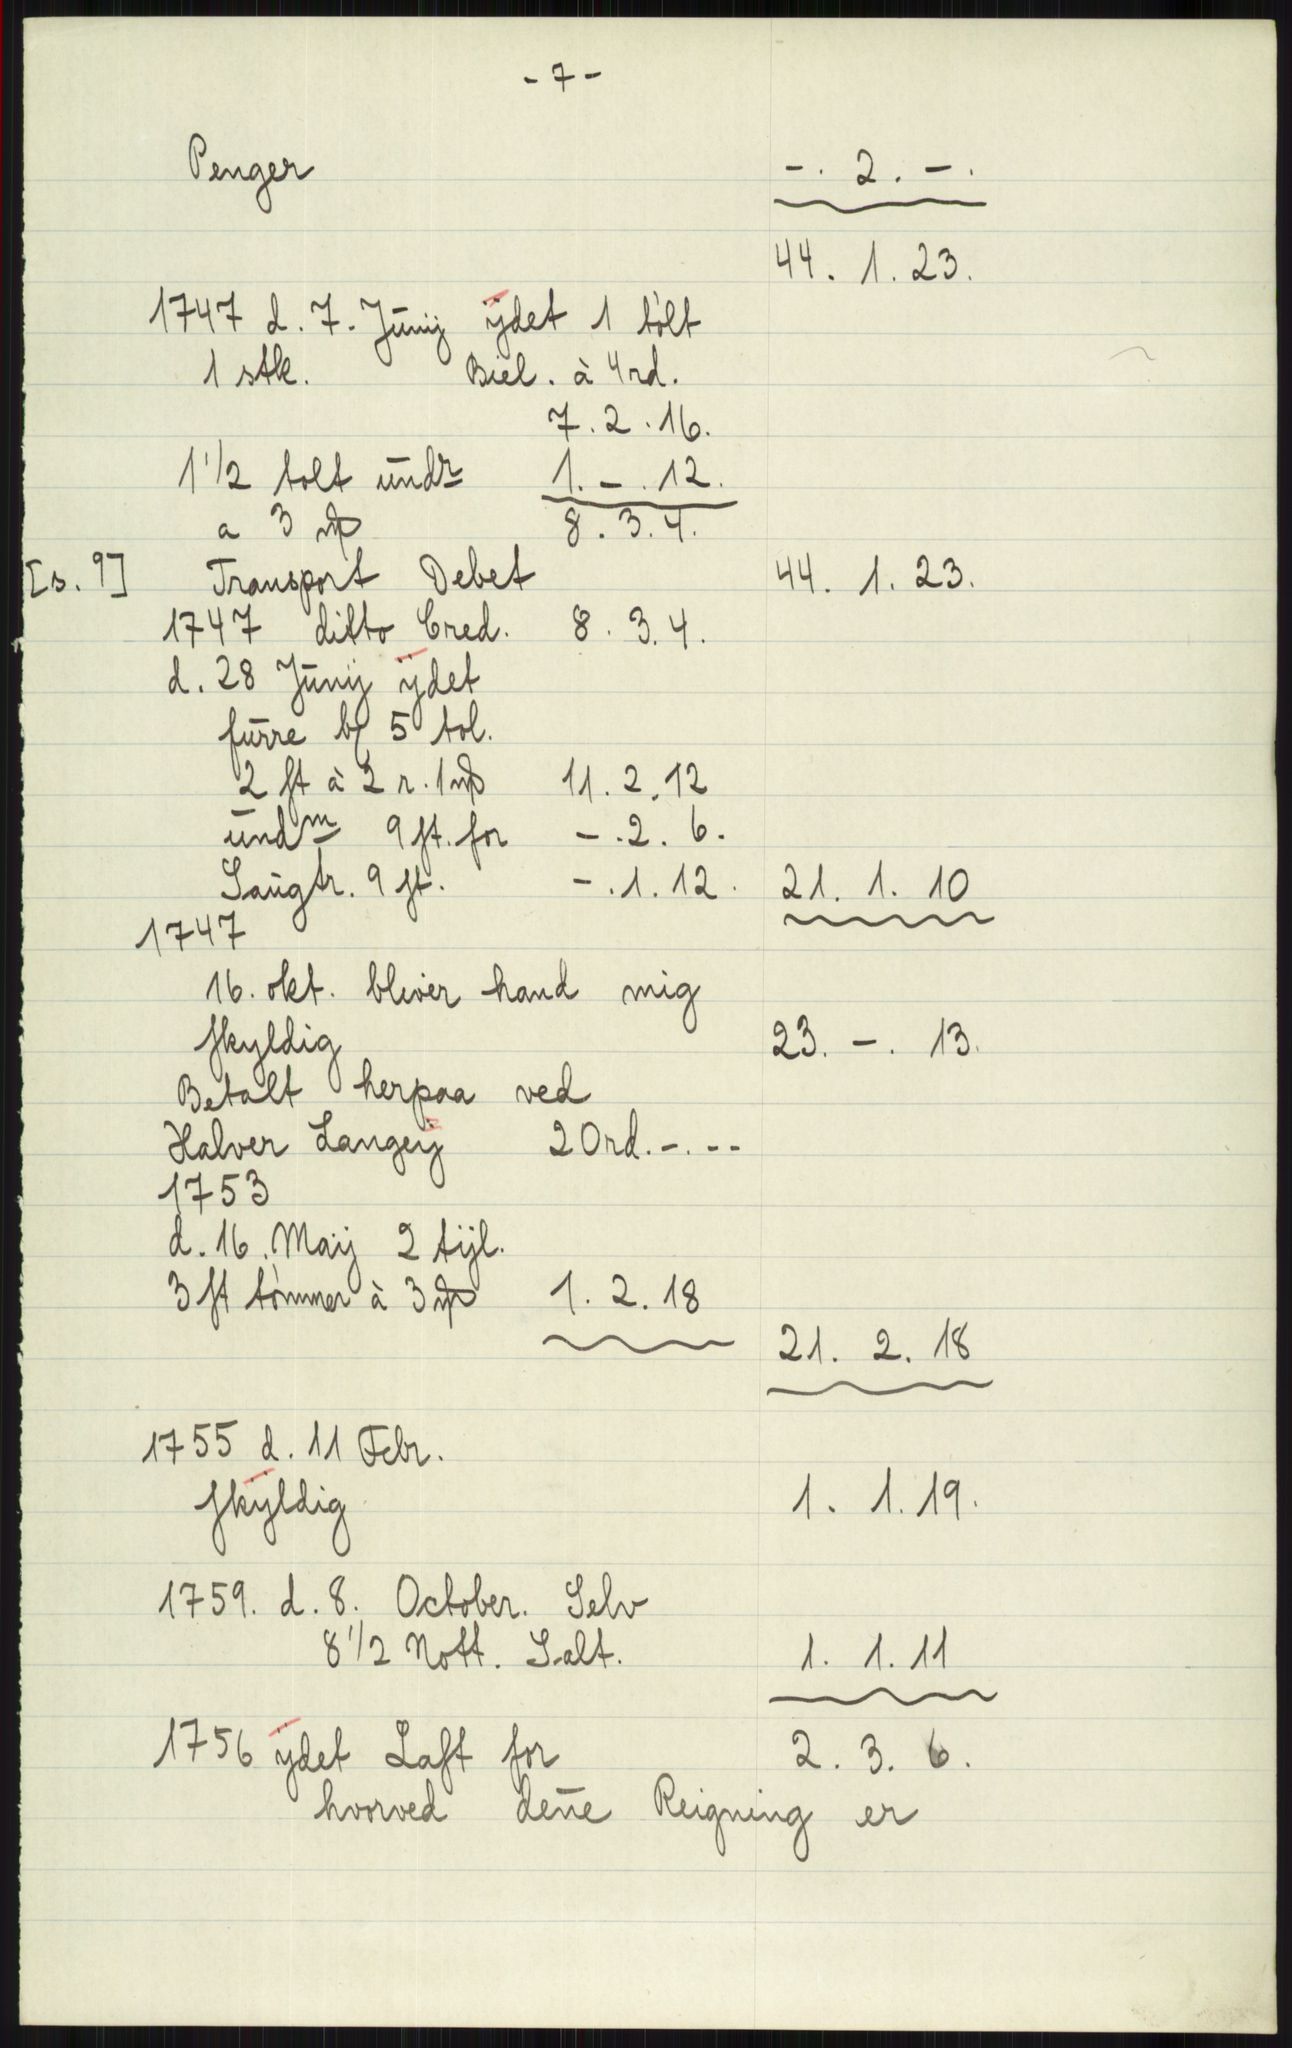 - 7 -
Penger -. 2. -.
44. 1. 23.
1747 d. 7. Jūnij ÿdet 1 tölt
1 stk. Biel. à 4 rd.
7. 2. 16.
1 1/2 tolt undr 1. -. 12.
a 3 8. 3. 4.
[s. 9] Transport Debet 44. 1. 23.
1747 ditto Cred. 8. 3. 4.
d. 28 Jūnij ÿdet
fūrre 5 tol.
2 ſt à 2 r. 1 11. 2. 12
ūndm 9 ſt. for -. 2. 6.
Saugtr. 9 ſt. -. 1. 12. 21. 1. 10
1747
16. okt. bliver hand mig
ſkyldig 23. -. 13.
Betalt herpaa ved
Halver Langeÿ 20 rd. -. --
1753
d. 16. Maij 2 tijl.
3 ſt tömmer à 3 1. 2. 18
21. 2. 18
1755 d. 11 Febr.
ſkÿldig 1. 1. 19.
1759. d. 8. October. Selv
8 1/2 Nott. Salt. 1. 1. 11
1756 ÿdet Laft for 2. 3. 6.
hvorved deñe Reigning er